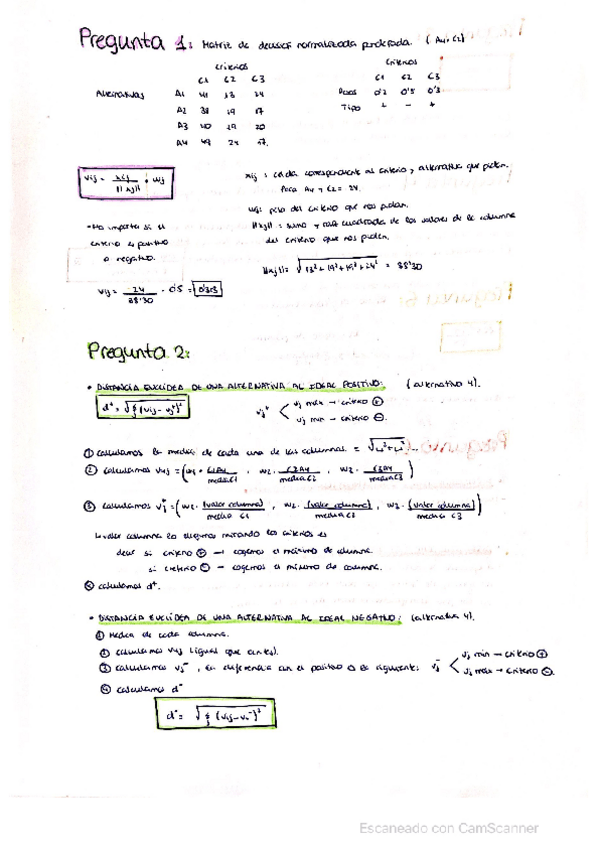 Pregunta 1: Matriz de decisión normalizada ponderada. (A4, C2)
Criterios
Criterios
C1 C2 C3
C1 C2 C3
Alternativas A1 41 13 24
Pesos 0'2 0'5 0'3
A2 38 19 17
Tipo - +
A3 40 19 20
A4 49 24 17.
Vij = xij / ||xj|| · wj
xij: celda correspondiente al criterio y alternativa que piden.
Para A4 y C2 = 24.
wj: peso del criterio que nos piden.
||xj|| = suma y raíz cuadrada de los valores de la columna
del criterio que nos piden.
*No importa si el
criterio es positivo
o negativo.
||xj|| = √13²+19²+19²+24² = 38'30
Vij = 24 / 38'30 · 0'5 = 0'313
Pregunta 2:
• DISTANCIA EUCLÍDEA DE UNA ALTERNATIVA AL IDEAL POSITIVO: (alternativa 4).
d⁺ = √Σj (Vij - Vj⁺)²
Vj⁺ < Vj máx → criterio ⊕
Vj min → criterio ⊖.
① calculamos la media de cada una de las columnas. =
② calculamos V4j = (w1 · C1A4 / mediaC1 , w2 · C2A4 / mediaC2 , w3 · C3A4 / mediaC3)
③ calculamos Vj⁺ = (w1 · (valor columna) / media C1 , w2 · (valor columna) / media C2 , w3 · (valor columna) / media C3)
↳ valor columna lo elegimos mirando los criterios es
decir si criterio ⊕ → cogemos el máximo de columna.
si criterio ⊖ → cogemos el mínimo de columna.
④ calculamos d⁺.
• DISTANCIA EUCLÍDEA DE UNA ALTERNATIVA AL IDEAL NEGATIVO: (alternativa 4).
① Media de cada columna.
② calculamos V4j (igual que antes).
③ calculamos Vj⁻, en diferencia con el positivo es lo siguiente: Vj⁻ < Vj min → criterio ⊕
Vj máx → criterio ⊖.
④ calculamos d⁻
d⁻ = √Σj (Vij - Vj⁻)²
Escaneado con CamScanner